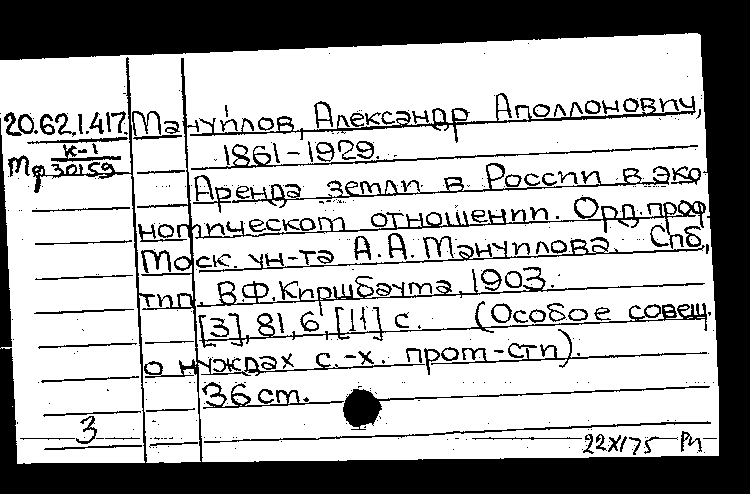 20.62.1.417 Мануйлов, Александр Аполлонович,
К-1
Мф 30159
1861-1929.
Аренда земли в России в эко-
номическом отношении. Орд.проф.
Моск. ун-та А.А.Мануилова. Спб.,
тип. В.Ф.Киршбаума, 1903.
[3], 81, 6, [11] с. (Особое совещ.
о нуждах с.-х. пром-сти).
36 cm.
3
22X175